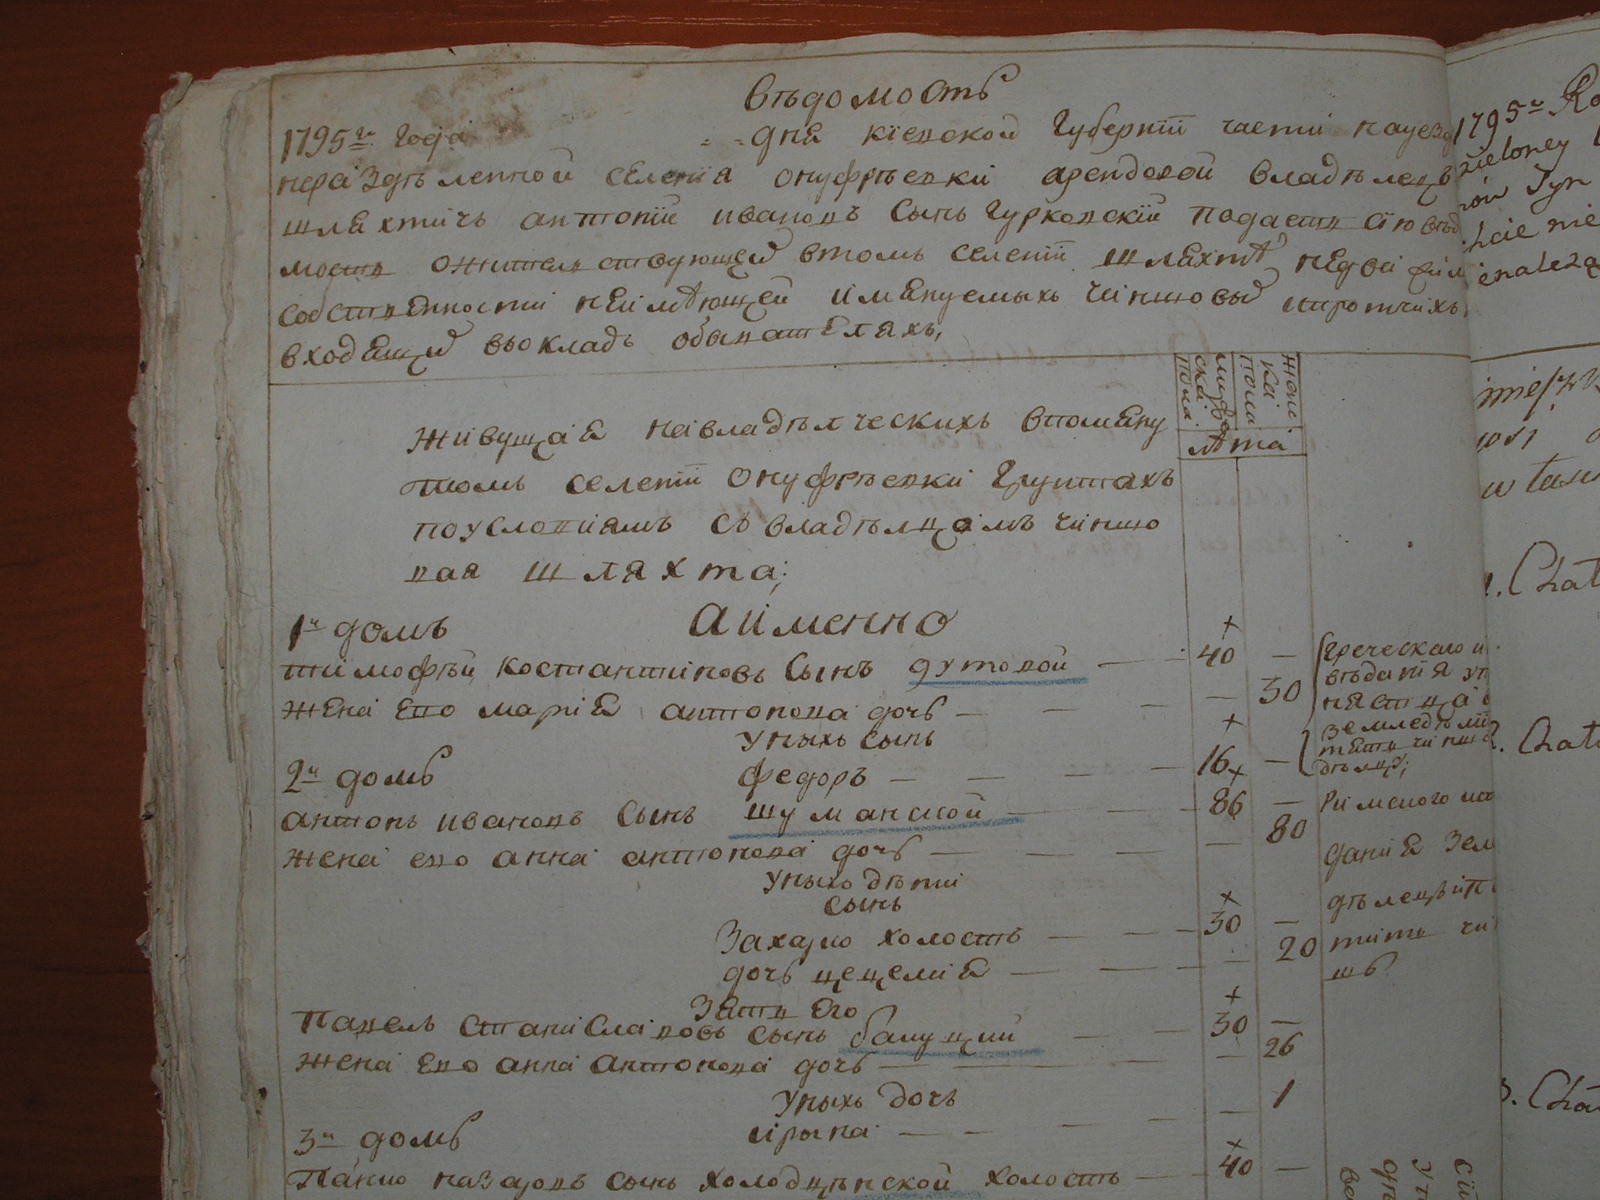 Вѣдомость
1795го года дня кіевской губерніи части науезд
нераздѣленной селенія онуфрѣевки арендовой владѣлецъ
шляхтичъ антоній ивановъ сынъ гурковскій подаетъ сію вѣдо
мость ожительствующей втомъ селеніи шляхтѣ недвижим
собственности неимѣющей имянуемыхъ чиншовыѣ ипротчихъ
входящиѣ въокладъ обывателяхъ,
мужеска пола
женска пола
лѣта
живущая навладѣлческихъ втомяну
томъ селеніи онуфрѣевки грунтахъ
поусловиямъ съ владѣлцамъ чиншо
вая шляхта;
аименно
1й домъ
тимофѣй костантиновъ сынъ дутовой — 40 —
жена ево мария антонова дочь — — 30
уныхъ сынъ
2й домъ федоръ — 16 —
антонъ ивановъ сынъ шуманской — 86 —
жена ево анна антонова дочь — — 80
уныхъ дѣти
сынъ
Захарио холостъ — 30 —
дочь цецелия — — 20
Зять его
Павелъ Станиславовъ сынъ балуцкий — 30 —
жена ево анна антонова дочь — — 26
уныхъ дочь
ирына — — 1
3й домъ
Панко назаровъ сынъ холодцѣнской холостъ — 40 —
греческаго и
вѣданія
земледѣлій
тятъ чинш
дѣлцу;
Римского
дания Зем
дѣлецъ ип
титъ чи
шъ
1795го Ro
zieloney
Syn
nie
1. Chat
2. Chat
3. Chat